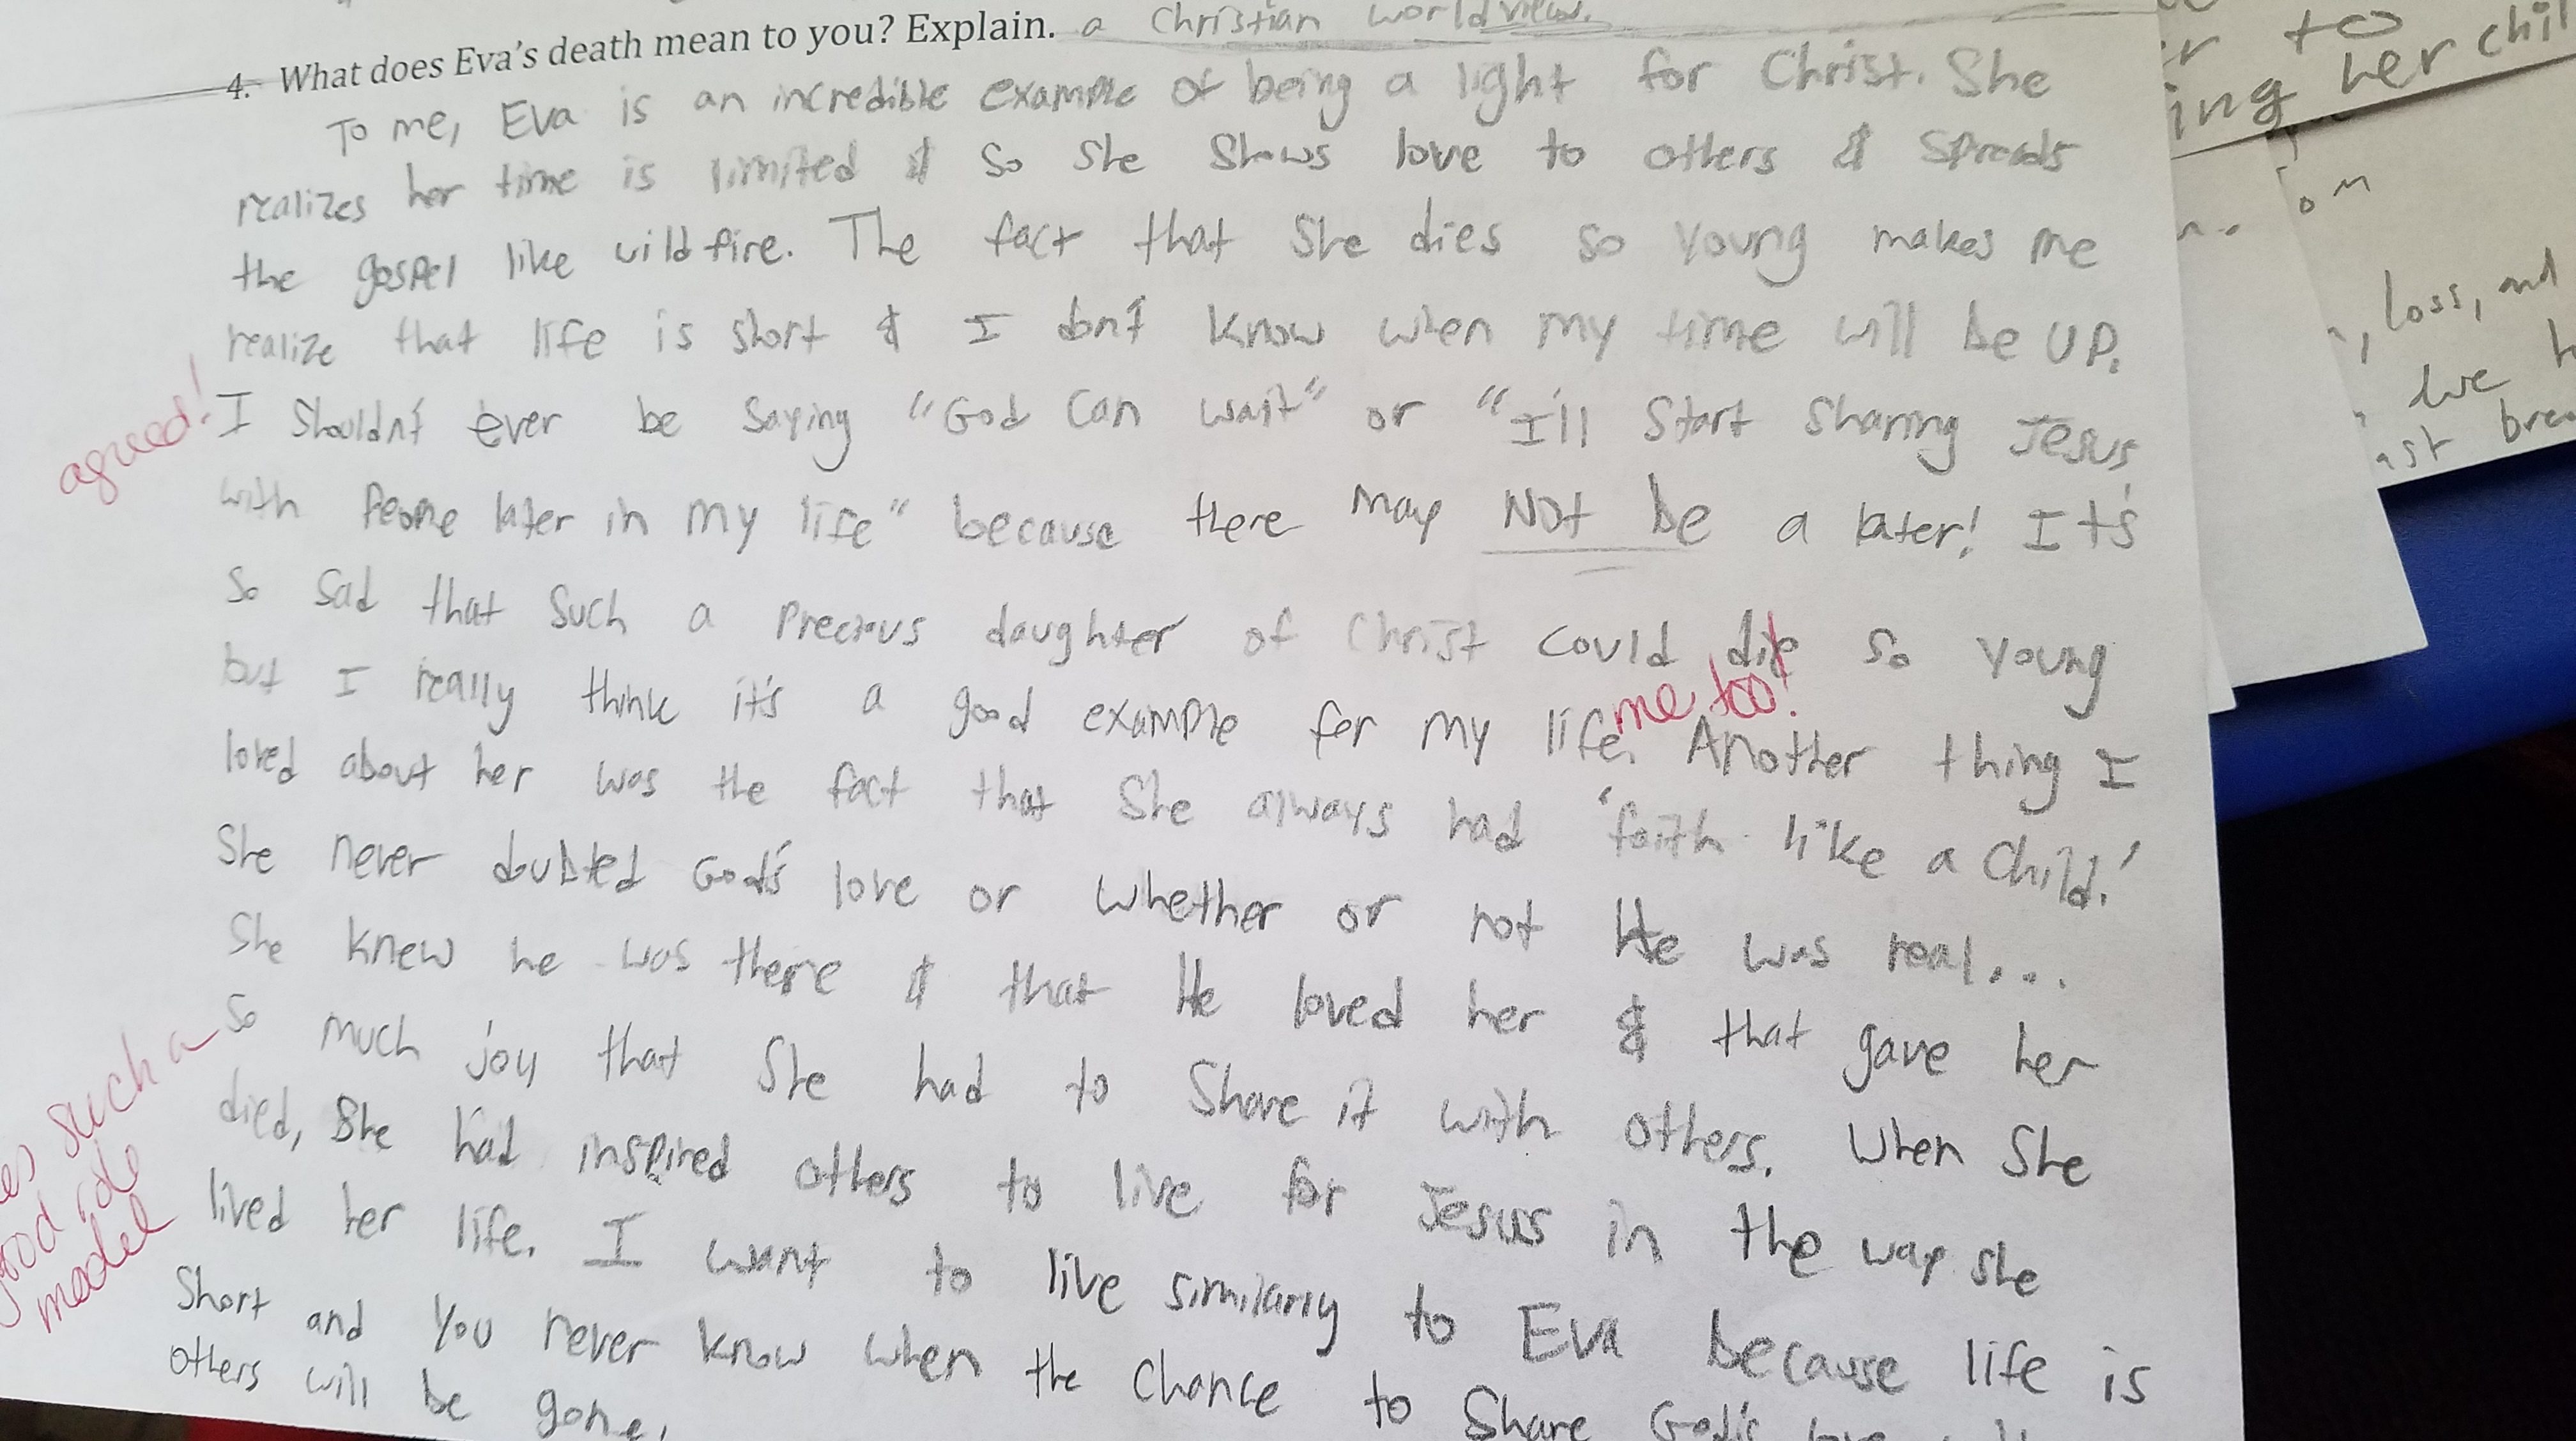 a Christian worldview.
4. What does Eva's death mean to you? Explain.
To me, Eva is an incredible example of being a light for Christ. She
realizes her time is limited & so she shows love to others & spreads
the gospel like wildfire. The fact that she dies so young makes me
realize that life is short & I don't know when my time will be up.
agreed!
I shouldn't ever be saying "God can wait" or "I'll start sharing Jesus
with people later in my life" because there may NOT be a later! It's
so sad that such a precious daughter of Christ could die so young
but I really think it's a good example for my life. Another thing I
me too!
loved about her was the fact that she always had 'faith like a child.'
She never doubted God's love or whether or not He was real...
She knew he was there & that He loved her & that gave her
so much joy that she had to share it with others. When she
died, she had inspired others to live for Jesus in the way she
lived her life. I want to live similarly to Eva because life is
short and you never know when the chance to share God's love
others will be gone.
such a
model
to
ing her chil
om
, loss, and